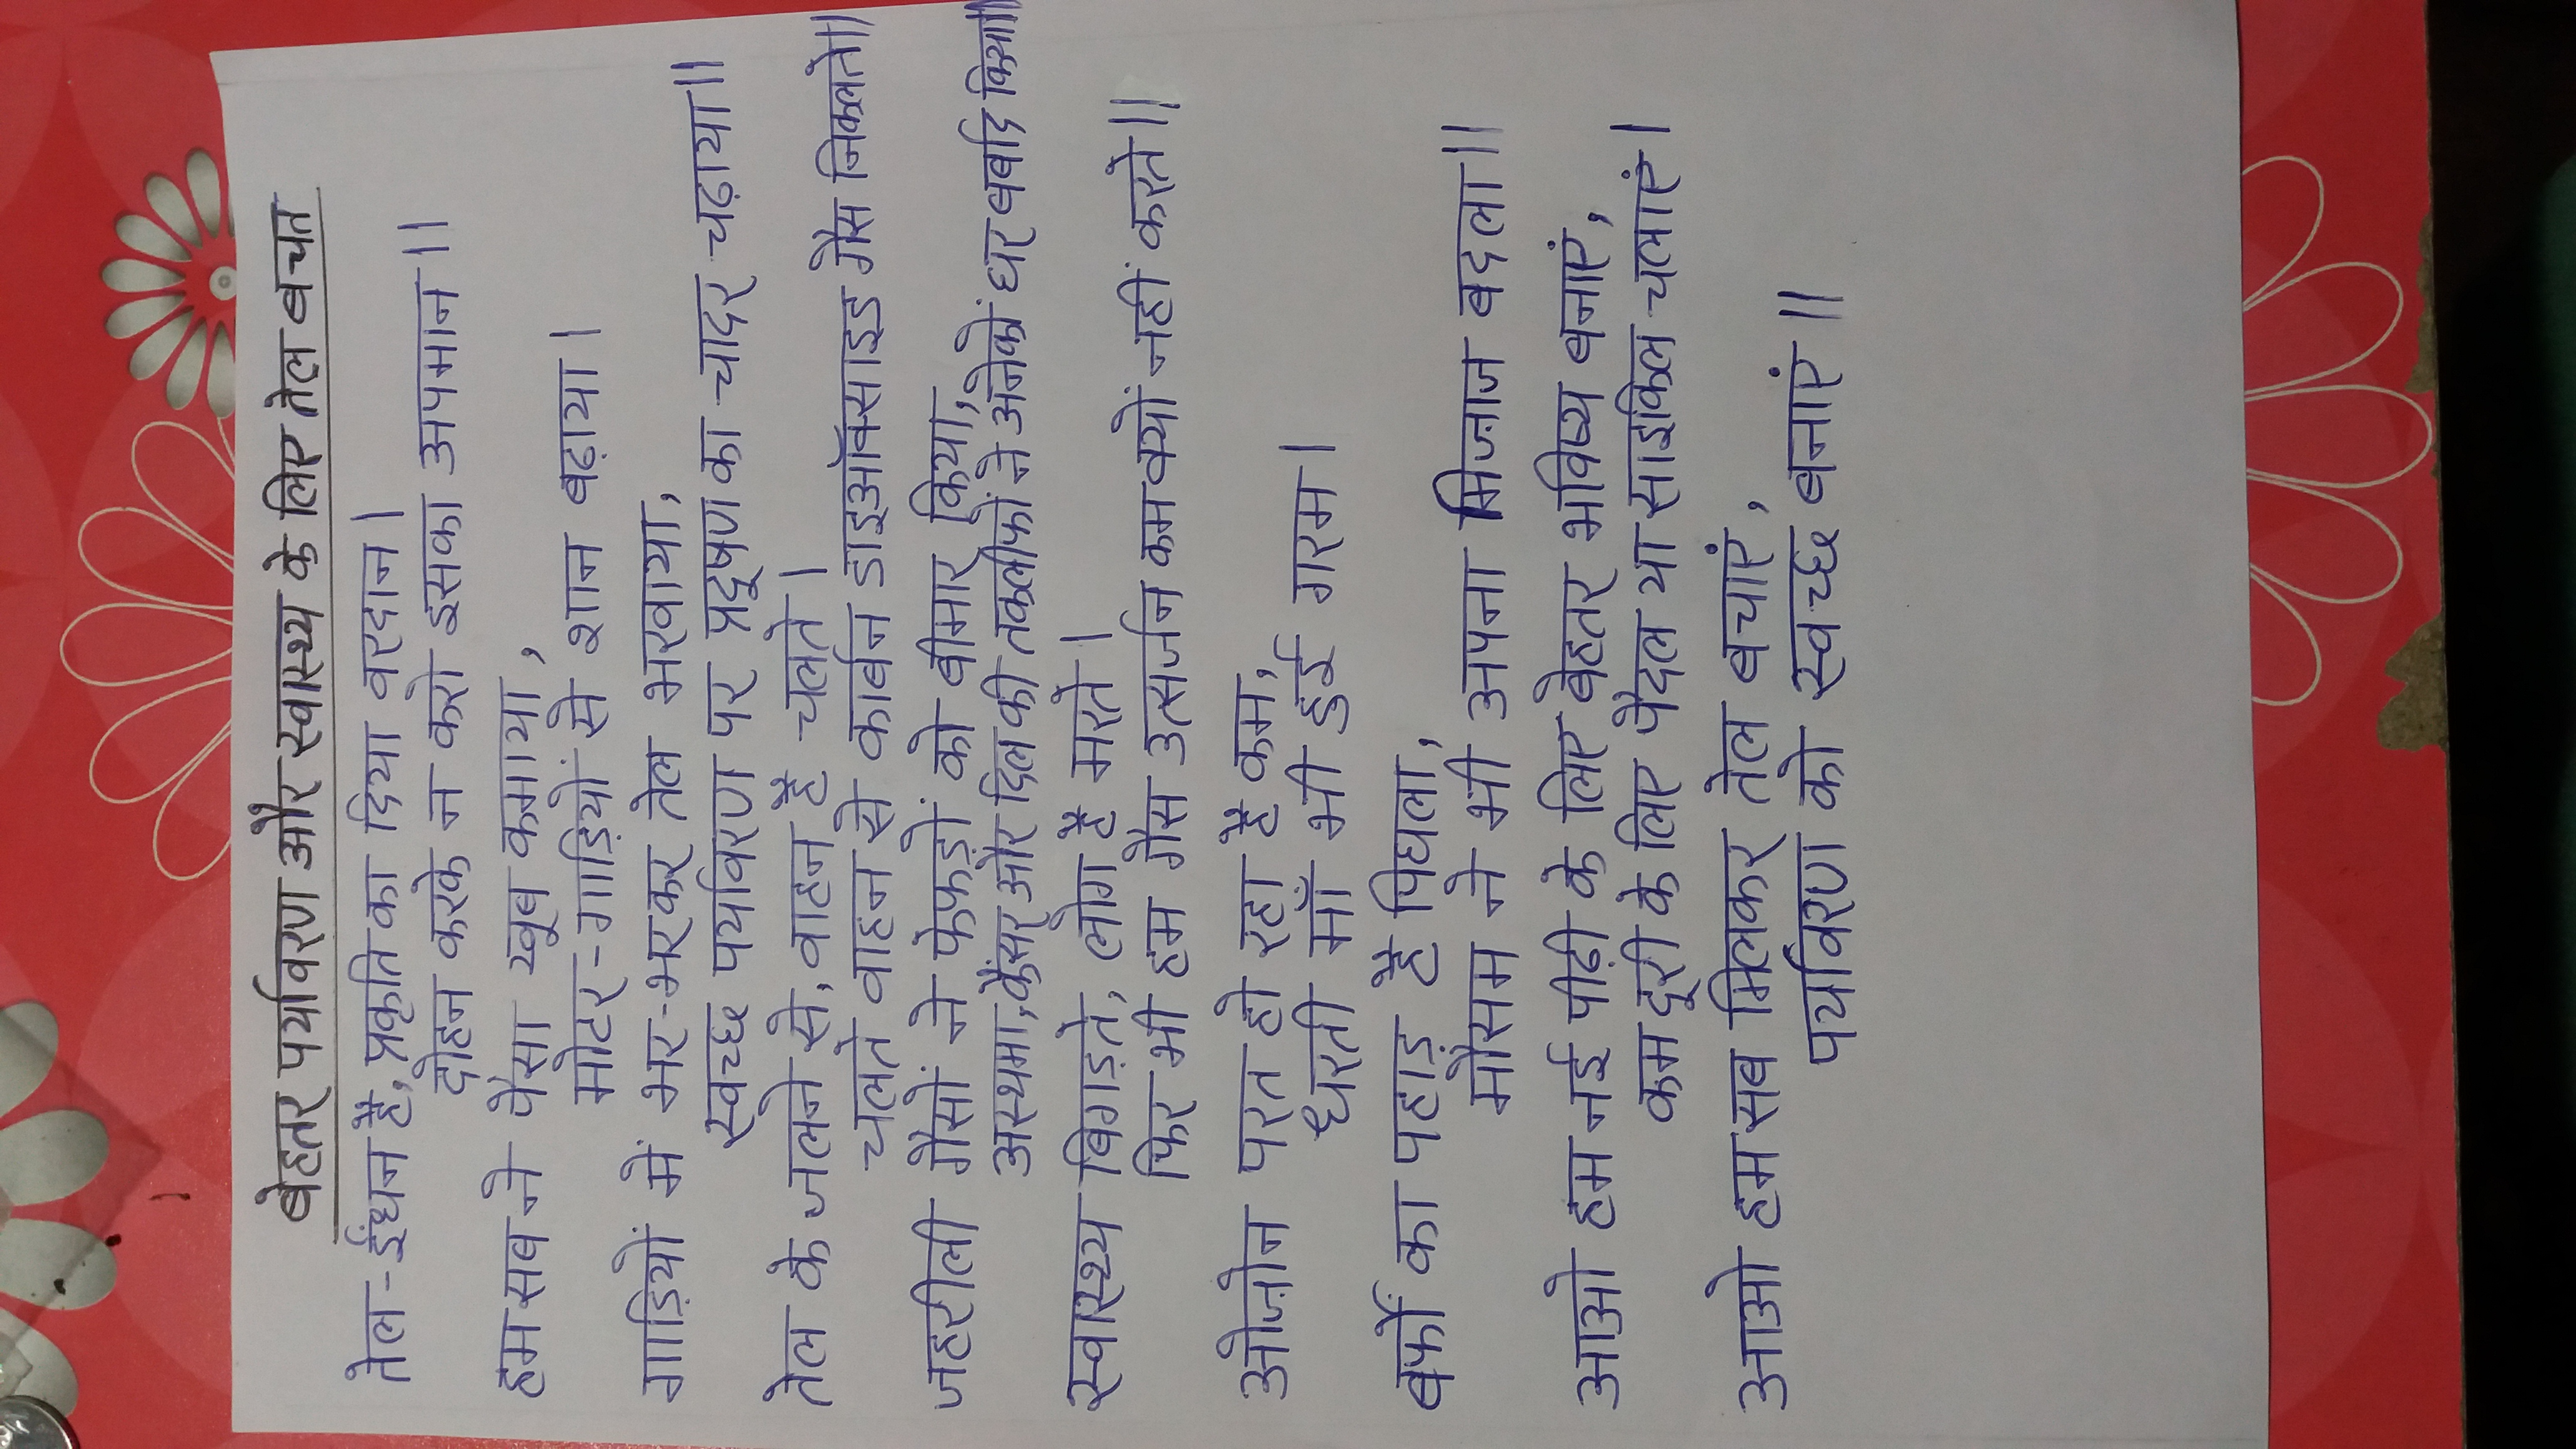 बेहतर पर्यावरण और स्वास्थ्य के लिए तेल बचत
तेल-ईंधन है, प्रकृति का दिया वरदान।
दोहन करके न करो इसका अपमान॥
हम सब ने पैसा खूब कमाया,
मोटर-गाड़ियों से शान बढ़ाया।
गाड़ियों में भर-भरकर तेल भरवाया,
स्वच्छ पर्यावरण पर प्रदूषण का चादर चढ़ाया॥
तेल के जलने से, वाहन है चलते।
चलते वाहन से कार्बन डाइऑक्साइड गैस निकलते॥
जहरीली गैसों ने फेफड़ों को बीमार किया,
अस्थमा, कैंसर और दिल की तकलीफों ने अनेकों घर बर्बाद किया॥
स्वास्थ्य बिगड़ते, लोग है मरते।
फिर भी हम गैस उत्सर्जन कम क्यों नहीं करते॥
ओज़ोन परत हो रहा है कम,
धरती माँ भी हुई गरम।
बर्फों का पहाड़ है पिघला,
मौसम ने भी अपना मिज़ाज बदला॥
आओ हम नई पीढ़ी के लिए बेहतर भविष्य बनाएं,
कम दूरी के लिए पैदल या साइकिल चलाएं।
आओ हम सब मिलकर तेल बचाएं,
पर्यावरण को स्वच्छ बनाएं॥